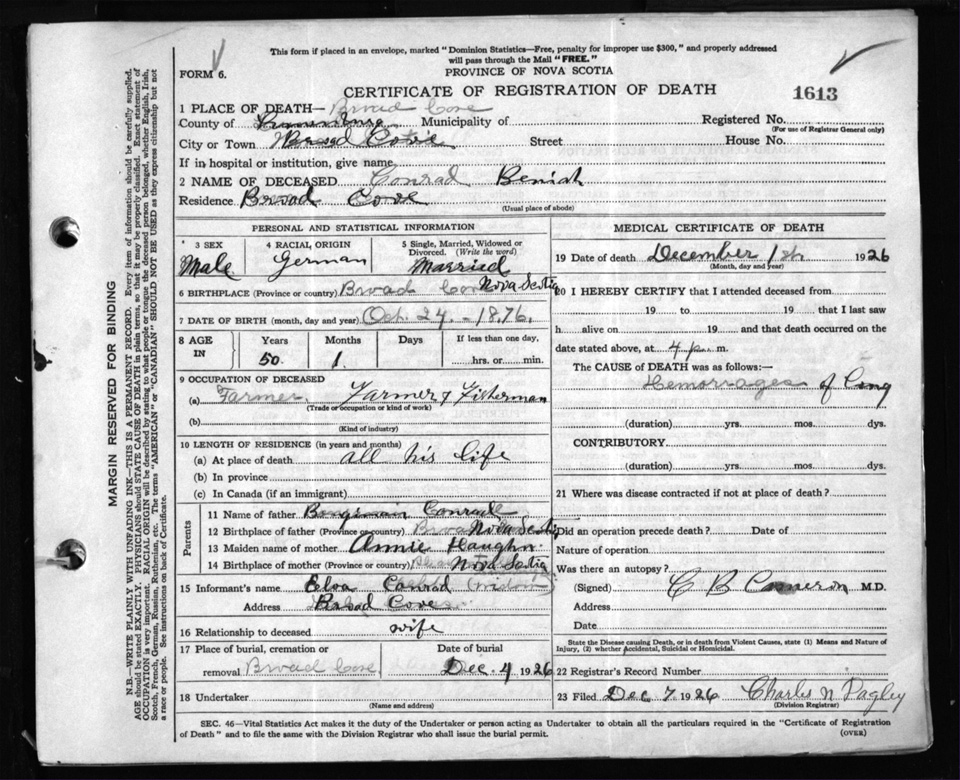 This form if placed in an envelope, marked "Dominion Statistics—Free, penalty for improper use $300," and properly addressed
will pass through the Mail "FREE."
FORM 6.
PROVINCE OF NOVA SCOTIA
CERTIFICATE OF REGISTRATION OF DEATH
1613
1 PLACE OF DEATH— Broad Cove
County of Municipality of Registered No.
(For use of Registrar General only)
City or Town Broad Cove Street House No.
If in hospital or institution, give name
2 NAME OF DECEASED Conrad Beniah
Residence Broad Cove
(Usual place of abode)
PERSONAL AND STATISTICAL INFORMATION
3 SEX 4 RACIAL ORIGIN 5 Single, Married, Widowed or Divorced. (Write the word)
Male German Married
6 BIRTHPLACE (Province or country) Broad Cove Nova Scotia
7 DATE OF BIRTH (month, day and year) Oct. 24 - 1876.
8 AGE IN Years Months Days If less than one day,
50 1 hrs. or min.
9 OCCUPATION OF DECEASED
(a) Farmer Farmer & Fisherman
(Trade or occupation or kind of work)
(b)
(Kind of industry)
10 LENGTH OF RESIDENCE (in years and months)
(a) At place of death all his life
(b) In province
(c) In Canada (if an immigrant)
Parents
11 Name of father Conrad
12 Birthplace of father (Province or country) Broad Nova Scotia
13 Maiden name of mother Annie Haughn
14 Birthplace of mother (Province or country) Nova Scotia
15 Informant's name Conrad (widow)
Address Broad Cove
16 Relationship to deceased wife
17 Place of burial, cremation or removal Broad Cove Date of burial Dec. 4 1926
18 Undertaker
(Name and address)
MEDICAL CERTIFICATE OF DEATH
19 Date of death December 1st 1926
(Month, day and year)
20 I HEREBY CERTIFY that I attended deceased from
19 to 19 that I last saw
h alive on 19 and that death occurred on
date stated above, at 4 p. m.
The CAUSE of DEATH was as follows:—
Hemorrages of Lung
(duration) yrs. mos. dys.
CONTRIBUTORY
(duration) yrs. mos. dys.
21 Where was disease contracted if not at place of death?
Did an operation precede death? Date of
Nature of operation
Was there an autopsy?
(Signed) C B Cameron M.D.
Address
Date
State the Disease causing Death, or in death from Violent Causes, state (1) Means and Nature of
Injury, (2) whether Accidental, Suicidal or Homicidal.
22 Registrar's Record Number
23 Filed Dec 7 1926 Charles N
(Division Registrar)
SEC. 46—Vital Statistics Act makes it the duty of the Undertaker or person acting as Undertaker to obtain all the particulars required in the "Certificate of Registration
of Death" and to file the same with the Division Registrar who shall issue the burial permit.
(OVER)
MARGIN RESERVED FOR BINDING
N.B.—WRITE PLAINLY WITH UNFADING INK—THIS IS A PERMANENT RECORD. Every item of information should be carefully supplied.
AGE should be stated EXACTLY. PHYSICIANS should STATE CAUSE OF DEATH in plain terms, so that it may be properly classified. Exact statement of
OCCUPATION is very important. RACIAL ORIGIN will be described by stating to what people or tongue the deceased person belonged, whether English, Irish,
Scotch, French, German, Russian, Ruthenian, etc. The terms "AMERICAN" or "CANADIAN" SHOULD NOT BE USED as they express citizenship but not
a race or people. See instructions on back of Certificate.